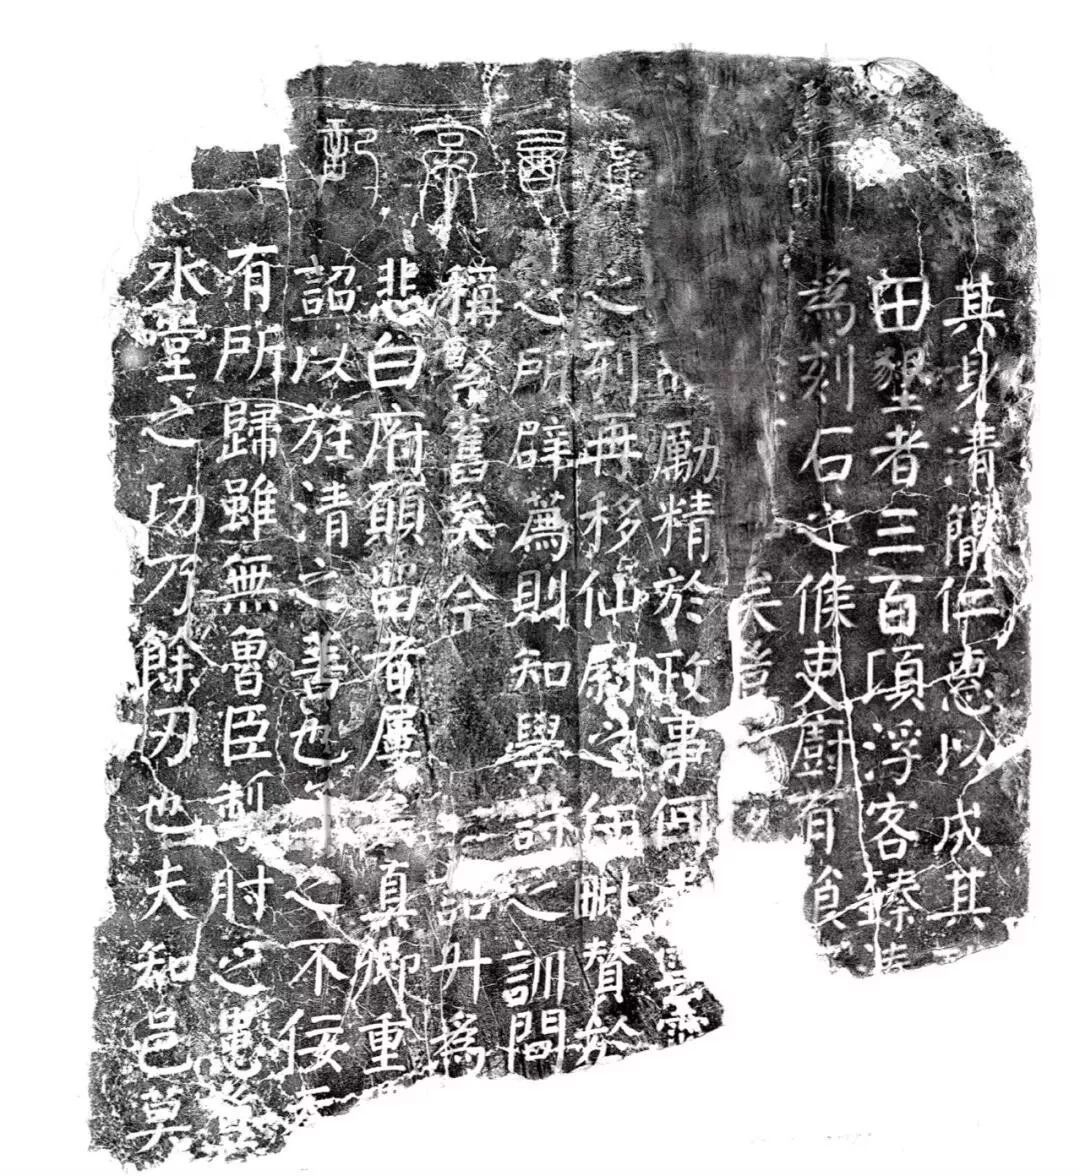 西亭記
其身清簡仁惠以成其
田墾者三百頃浮客臻湊
為刻石之候吏廚有飡
矣豈
勵精於政事何雲霄
之列再移仙尉之任毗贊於
之所辟薦則知學詩之訓間
稱緊舊矣今詔升為
悲白府願留者屢矣真卿重
詔以旌清之善也之不佞忝
有所歸雖無魯臣掣肘之患豈
水堂之功乃餘刃也夫知邑莫